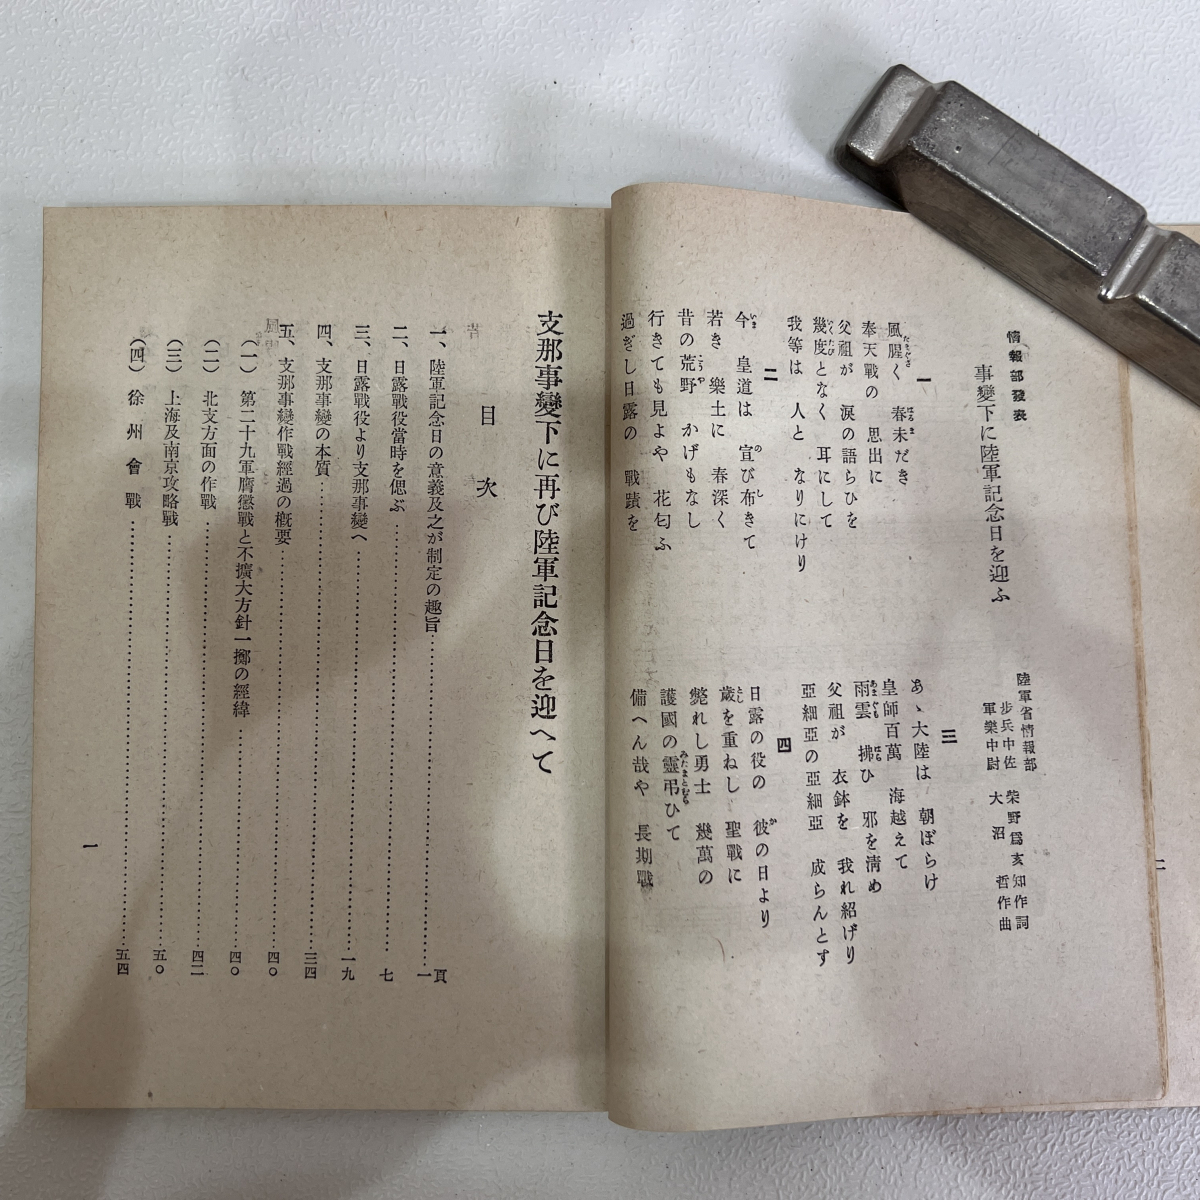 情報部發表
事變下に陸軍記念日を迎ふ
陸軍省情報部
步兵中佐 柴野爲亥知作詞
軍樂中尉 大沼哲作曲
一
風腥く 春未だき
奉天戰の 思出に
父祖が 淚の語らひを
幾度となく 耳にして
我等は 人と なりにけり
二
今 皇道は 宣び布きて
若き 樂土に 春深く
昔の荒野 かげもなし
行きても見よや 花匂ふ
過ぎし日露の 戰蹟を
三
あゝ大陸は 朝ぼらけ
皇師百萬 海越えて
雨雲 拂ひ 邪を淸め
父祖が 衣鉢を 我れ紹げり
亞細亞の亞細亞 成らんとす
四
日露の役の 彼の日より
歲を重ねし 聖戰に
斃れし勇士 幾萬の
護國の靈弔ひて
備へん哉や 長期戰
二
支那事變下に再び陸軍記念日を迎へて
目次
一、陸軍記念日の意義及之が制定の趣旨……一頁
二、日露戰役當時を偲ぶ……七
三、日露戰役より支那事變へ……一九
四、支那事變の本質……三四
五、支那事變作戰經過の槪要……四〇
(一) 第二十九軍膺懲戰と不擴大方針一擲の經緯……四〇
(二) 北支方面の作戰……四二
(三) 上海及南京攻略戰……五〇
(四) 徐州會戰……五四
一